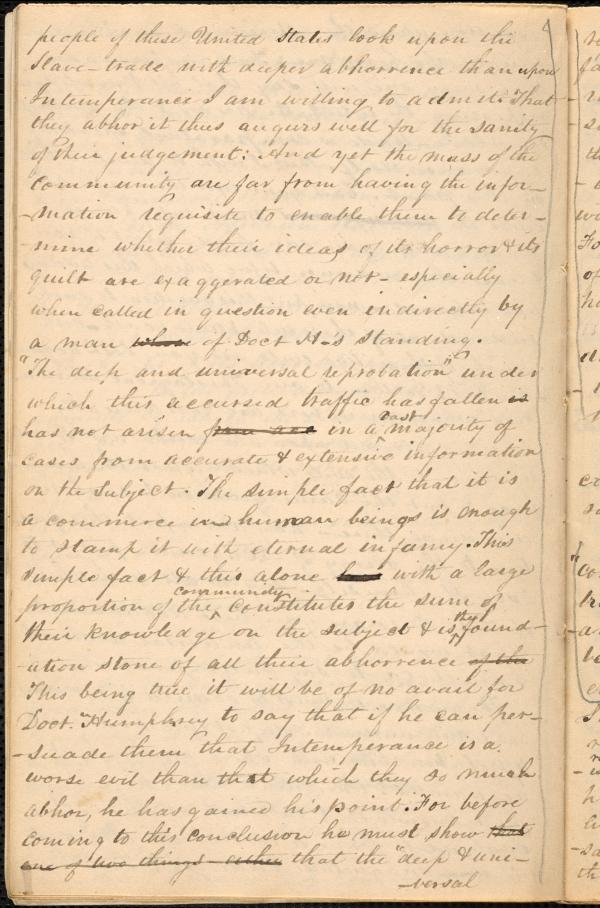 people of these United States look upon the
Slave-trade with deeper abhorrence than upon
Intemperance I am willing to admit: That
they abhor it thus augurs well for the sanity
of their judgement: And yet the mass of the
community are far from having the infor-
-mation requisite to enable them to deter-
-mine whether their ideas of its horror & its
guilt are exaggerated or not - especially
when called in question even indirectly by
a man whose of Doct H-'s standing.
"The deep and universal reprobation" under
which this accursed traffic has fallen is
has not arisen from acc in a vast majority of
cases from accurate & extensive information
on the subject. The simple fact that it is
a commerce in human beings is enough
to stamp it with eternal infamy. This
simple fact & this alone with a large
proportion of the community constitutes the sum of
their knowledge on the subject & is the found-
-ation stone of all their abhorrence of the
This being true it will be of no avail for
Doct. Humphrey to say that if he can per-
-suade them that Intemperance is a
worse evil than that which they so much
abhor, he has gained his point. For before
coming to this conclusion he must show that
one of two things - either that the "deep & uni-
-versal